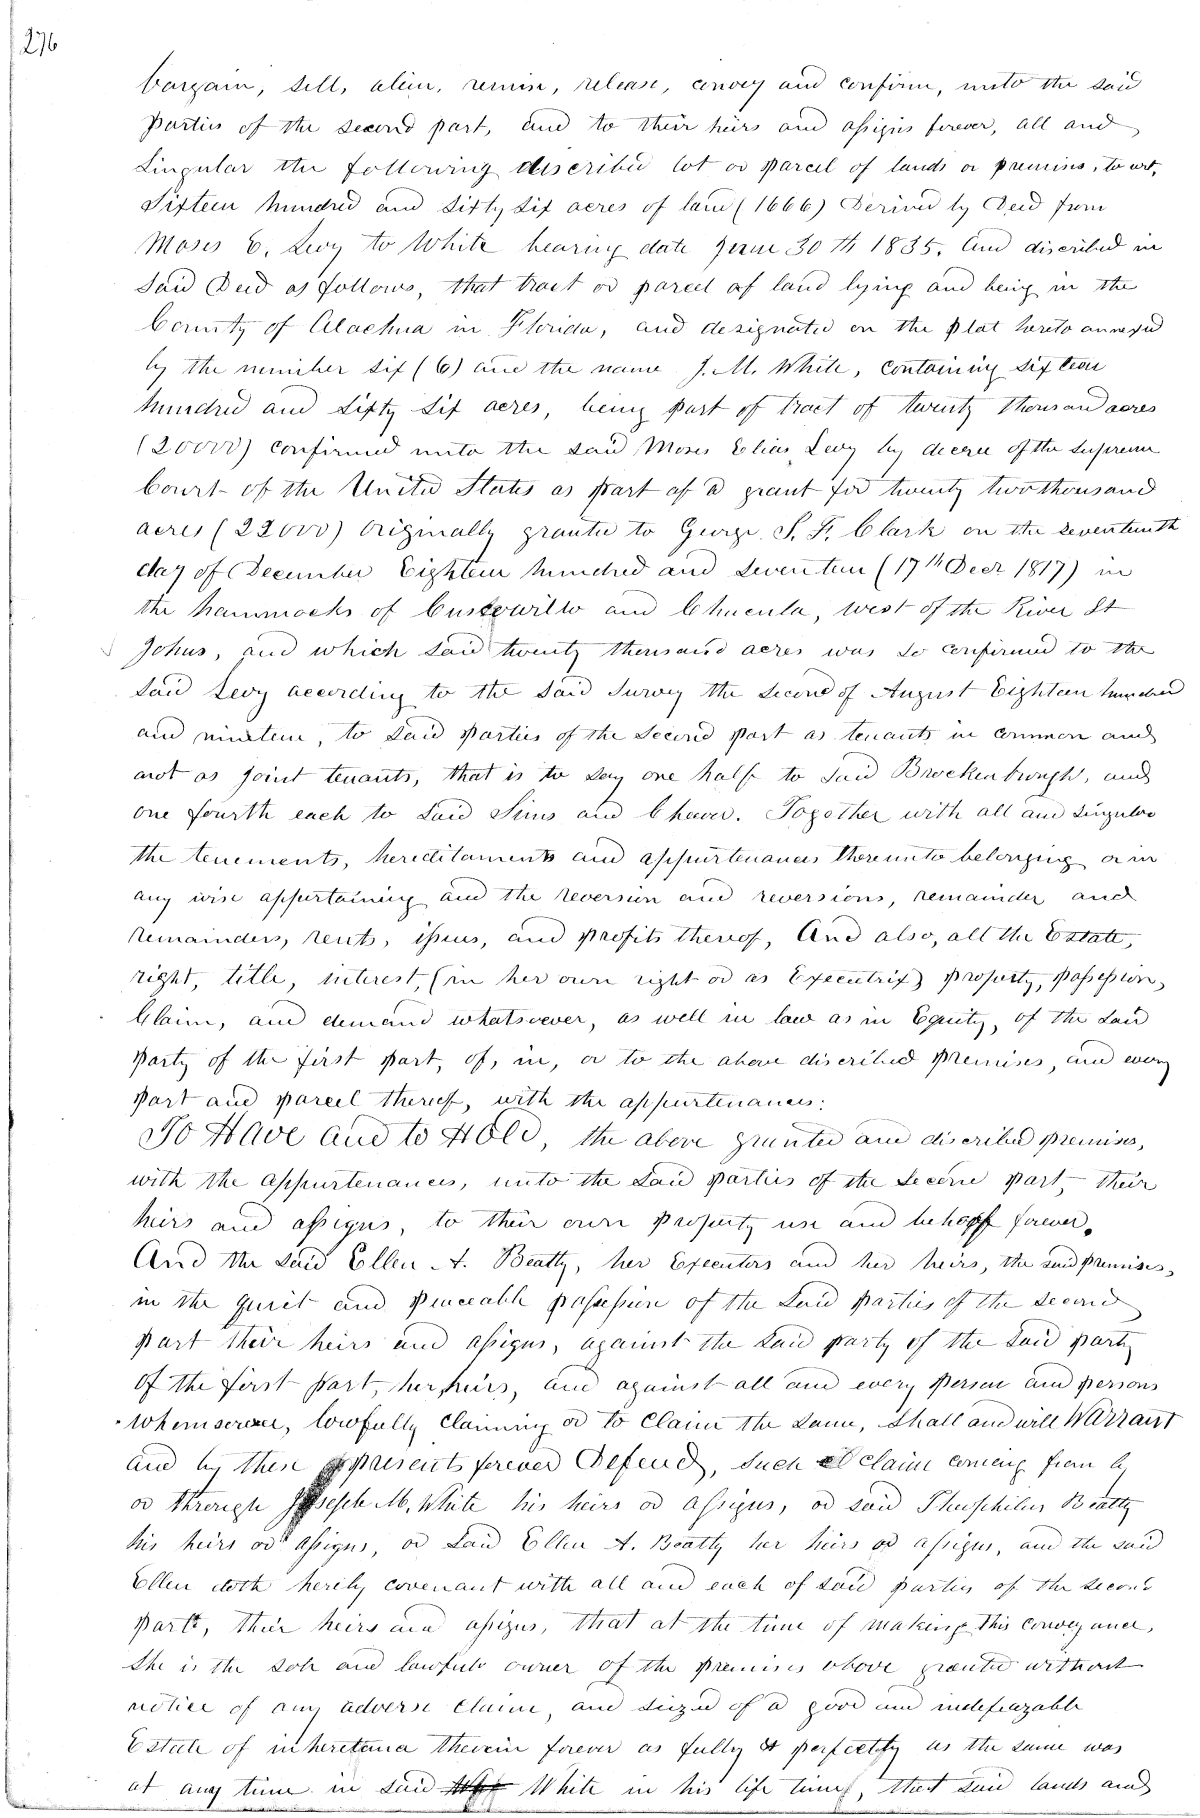 276
bargain, sell, alien, remise, release, convey and confirm, unto the said
parties of the second part, and to their heirs and assigns forever, all and
Singular the following discribed lot or parcel of lands or premises, to wit,
Sixteen hundred and sixty six acres of land (1666) Derived by Deed from
Moses E. Levy to White bearing date June 30th 1835. And discribed in
said Deed as follows, that tract or parcel of land lying and being in the
County of Alachua in Florida, and designated on the plat hereto annexed
by the number six (6) and the name J. M. White, containing sixteen
hundred and sixty six acres, being part of tract of twenty thousand acres
(20000) confirmed unto the said Moses Elias Levy by decree of the Supreme
Court of the United States as part of a grant for twenty two thousand
acres (22000) originally granted to George S. F. Clark on the seventeenth
day of December Eighteen hundred and seventeen (17th Decr 1817) in
the hammocks of Cuscowillo and Chucula, west of the River St
Johns, and which said twenty thousand acres was so confirmed to the
said Levy according to the said survey the second of August Eighteen hundred
and nineteen, to said parties of the second part as tenants in common and
not as joint tenants, that is to say one half to said Brockenbrough, and
one fourth each to said Sims and Chaires. Together with all and singular
the tenements, hereditaments and appurtenances thereunto belonging or in
any wise appertaining and the reversion and reversions, remainder and
remainders, rents, issues, and profits thereof, And also, all the Estate,
right, title, interest, (in her own right or as Executrix) property, possession,
Claim, and demand whatsoever, as well in law as in Equity, of the said
party of the first part, of, in, or to the above discribed premises, and every
part and parcel thereof, with the appurtenances:
To Have and to Hold, the above granted and discribed premises,
with the appurtenances, unto the said parties of the second part, their
heirs and assigns, to their own property use and behoof forever.
And the said Ellen A. Beatty, her Executors and her heirs, the said premises,
in the quiet and peaceable possession of the said parties of the second
part their heirs and assigns, against the said party of the said party
of the first part, her heirs, and against all and every person and persons
whomsoever, lawfully claiming or to claim the same, shall and will Warrant
and by these presents forever Defend, such claim coming from by
or through Joseph M. White his heirs or assigns, or said Theophilus Beatty
his heirs or assigns, or said Ellen A. Beatty her heirs or assigns, and the said
Ellen doth hereby covenant with all and each of said parties of the second
part, their heirs and assigns, that at the time of making this conveyance,
she is the sole and lawful owner of the premises above granted without
notice of any adverse claim, and seized of a good and indefeazable
Estate of inheretance therein forever as fully & perfectly as the same was
at any time in said White in his life time, that said lands and